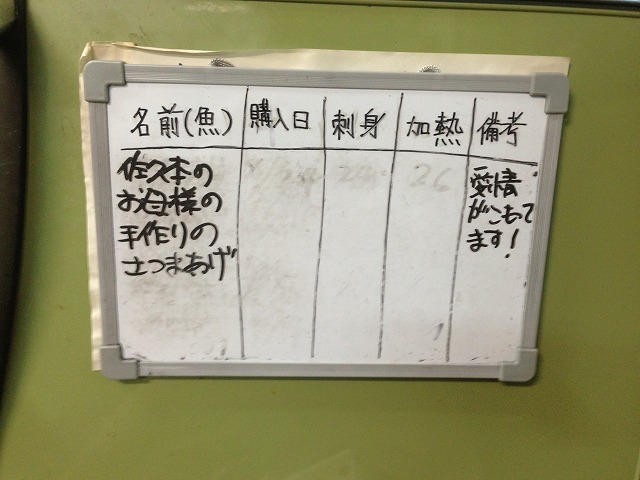 名前(魚) 購入日 刺身 加熱 備考
佐久本の
お母様の
手作りの
さつまあげ
愛情
がこもって
ます!